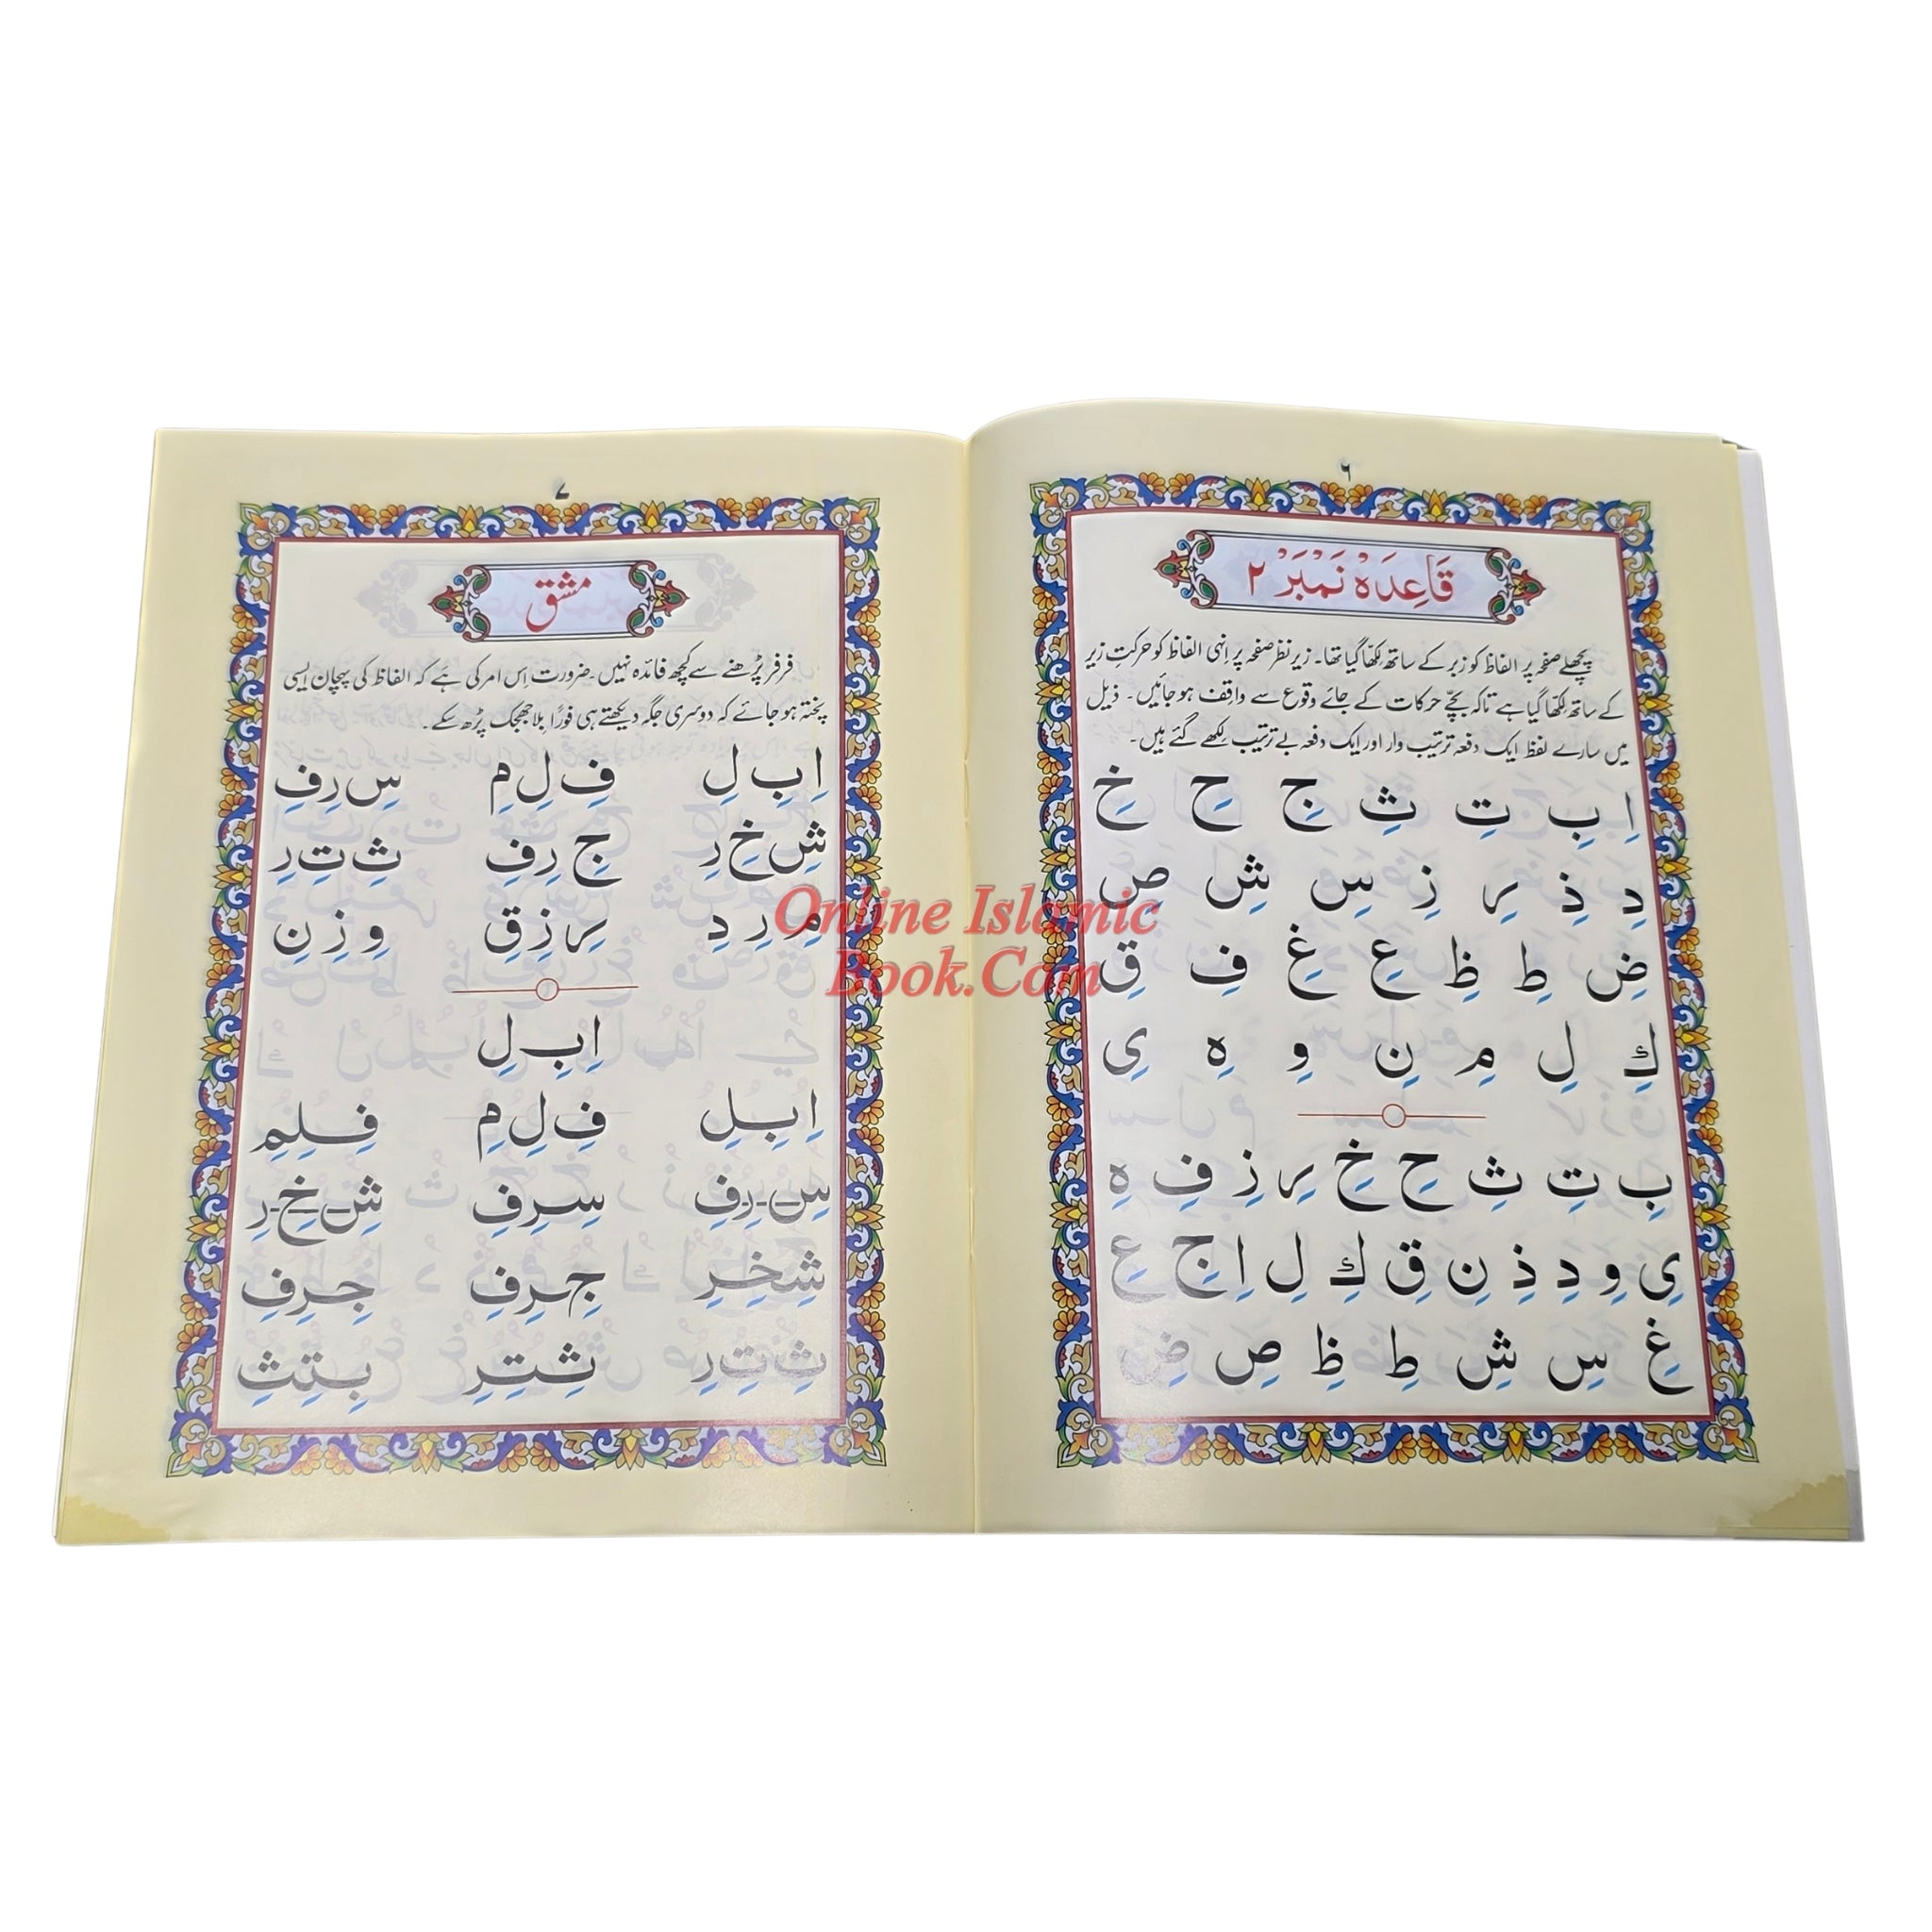 ٦
قَاعِدَہ نَمْبَرْ ۲
پچھلے صفحہ پر الفاظ کو زبر کے ساتھ لکھا گیا تھا۔ زیر نظر صفحہ پر اِنہی الفاظ کو حرکتِ زیر
کے ساتھ لکھا گیا ہے تاکہ بچّے حرکات کے جائے وقوع سے واقف ہو جائیں۔ ذیل
میں سارے لفظ ایک دفعہ ترتیب وار اور ایک دفعہ بے ترتیب لکھے گئے ہیں۔
اِ بِ تِ ثِ جِ حِ خِ
دِ ذِ رِ زِ سِ شِ صِ
ضِ طِ ظِ عِ غِ فِ قِ
كِ لِ مِ نِ وِ هِ ىِ
بِ تِ ثِ حِ خِ رِ زِ فِ هِ
ىِ وِ دِ ذِ نِ قِ كِ لِ اِ جِ عِ
غِ سِ شِ طِ ظِ صِ ضِ
٧
مشق
فرفر پڑھنے سے کچھ فائدہ نہیں۔ ضرورت اِس امر کی ہے کہ الفاظ کی پہچان ایسی
پختہ ہو جائے کہ دوسری جگہ دیکھتے ہی فورًا بلا جھجک پڑھ سکے۔
اِ بِ لِ فِ لِ مِ سِ رِ فِ
شِ خِ رِ جِ رِ فِ ثِ تِ رِ
مِ رِ دِ رِ زِ قِ وِ زِ نِ
اِ بِ لِ
اِ بِلِ فِ لِ مِ فِلِمِ
سِ-رِ-فِ سِرِفِ شِ-خِ-رِ
شِخِرِ جِ-رِفِ جِرِفِ
ثِ تِ رِ ثِتِرِ بِتِثِ
Online Islamic
Book.Com